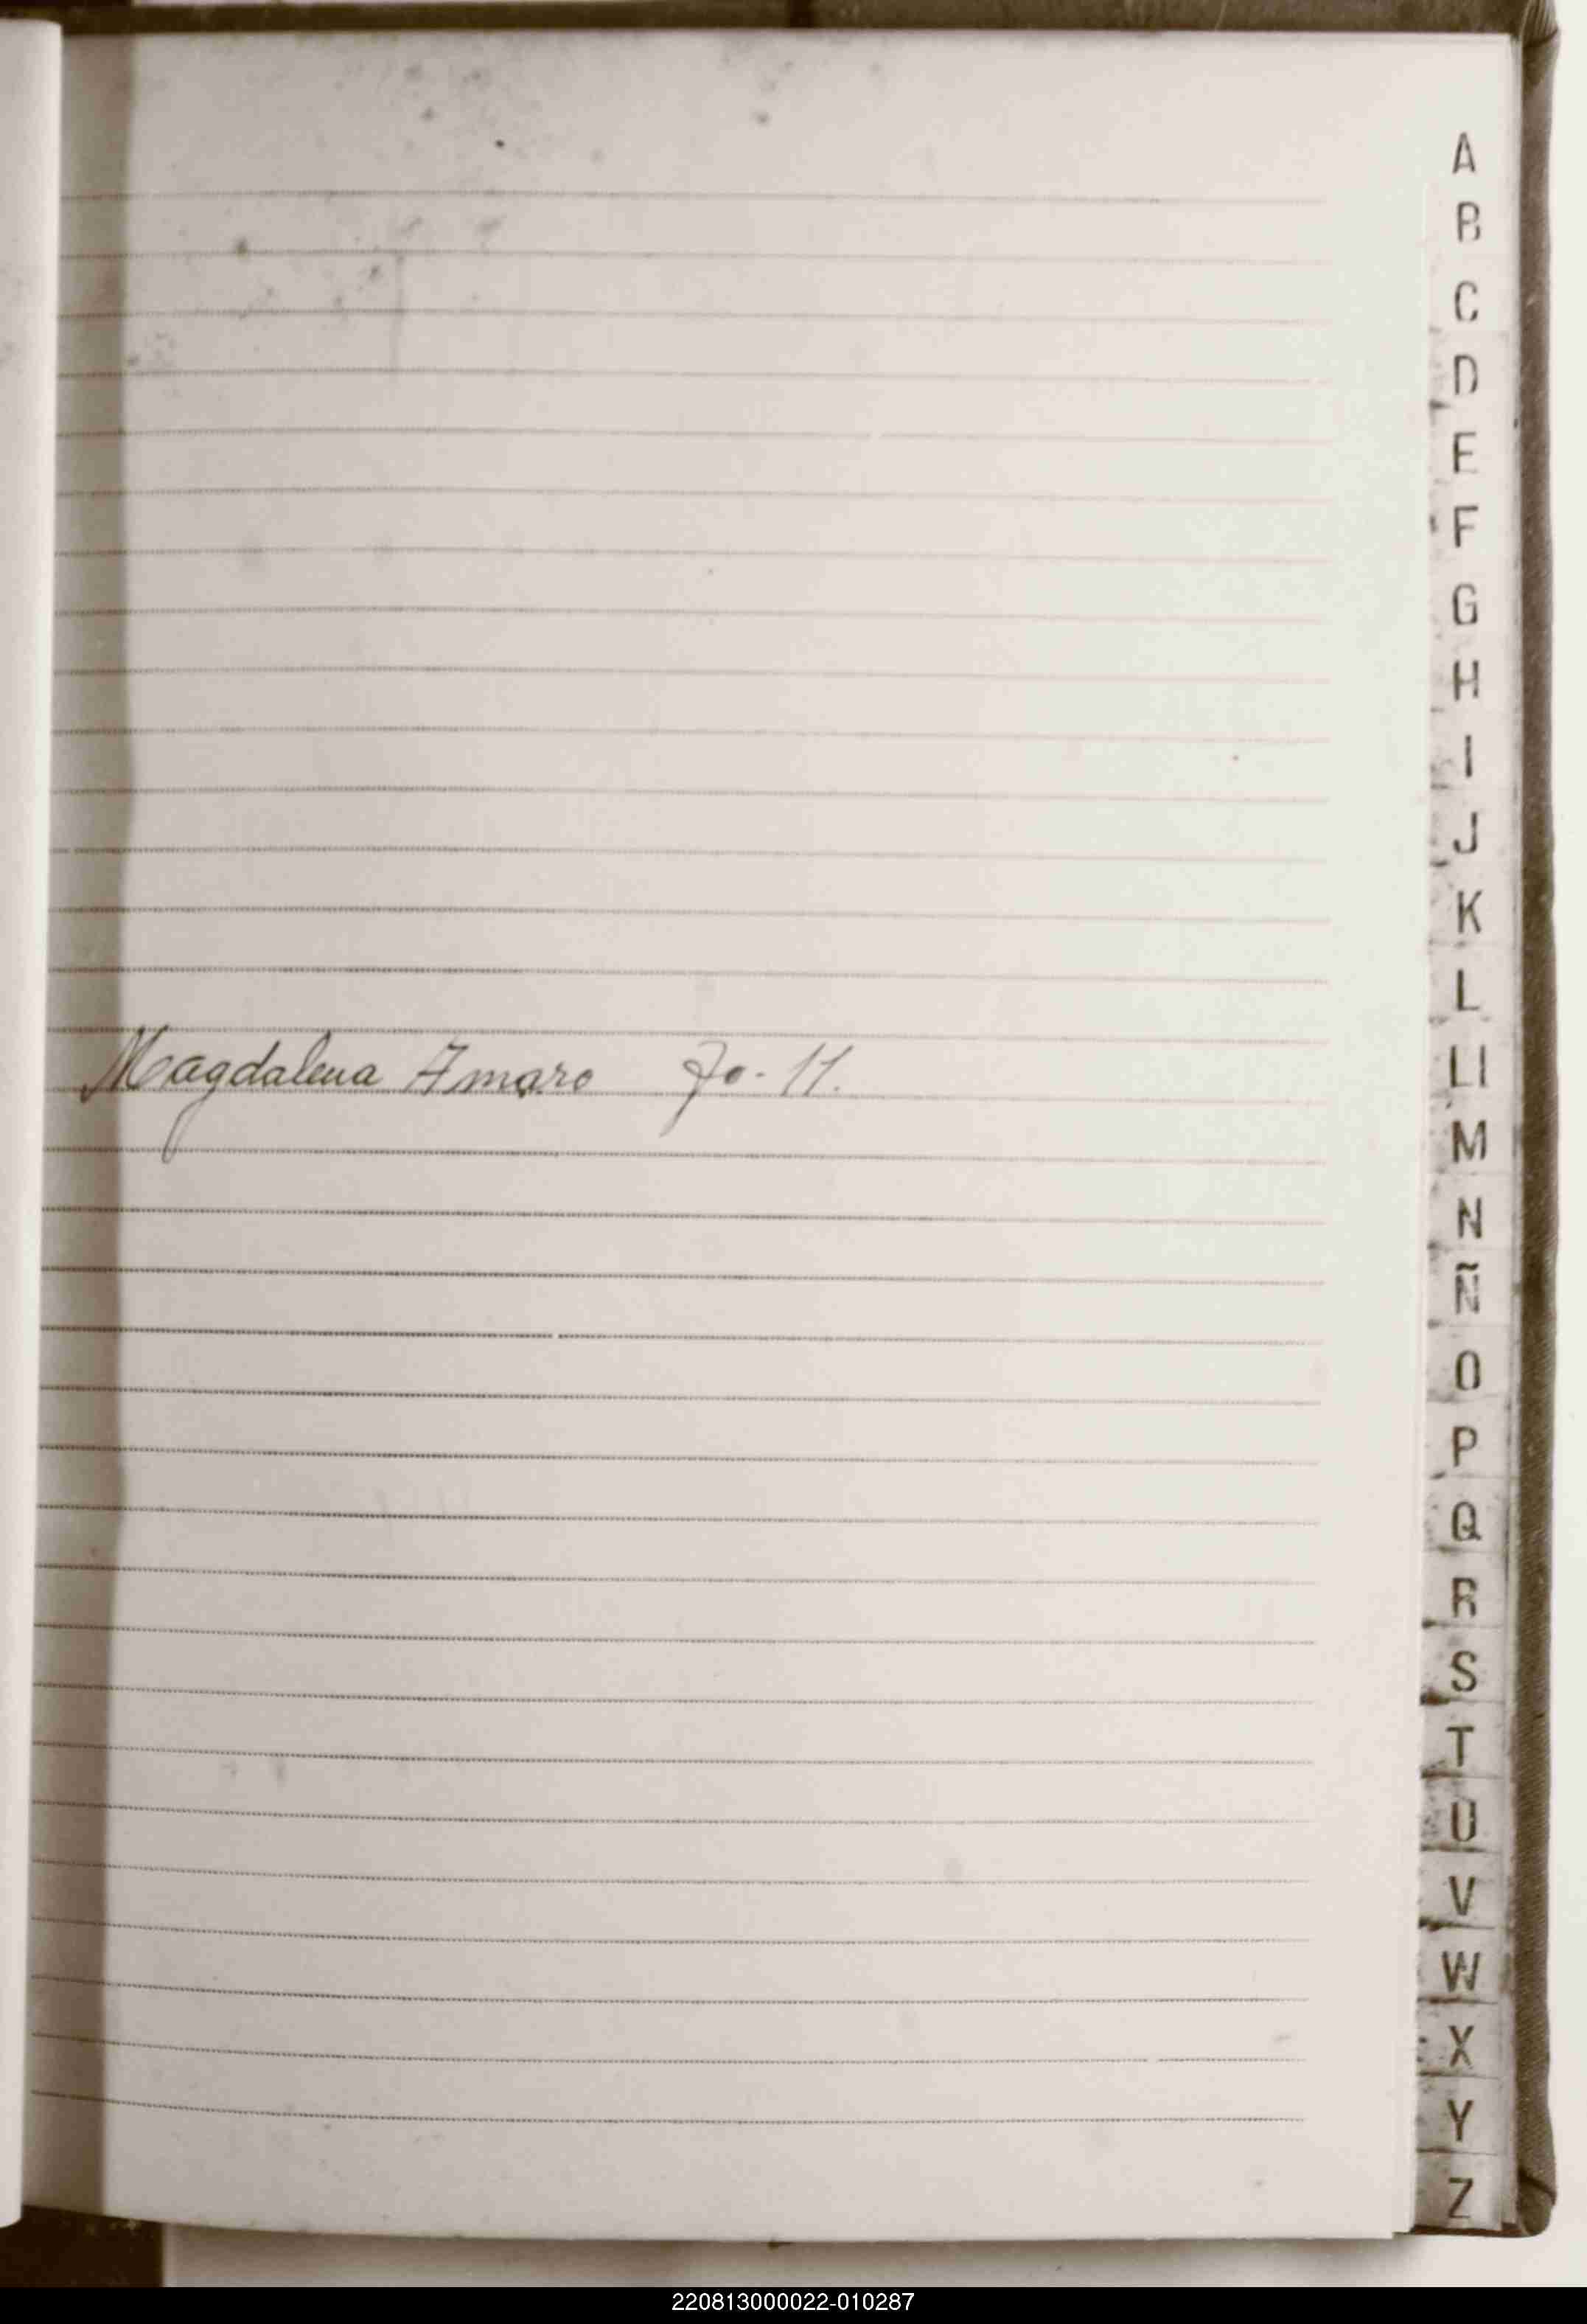 Magdalena Amaro Fo- 11.
A
B
C
D
E
F
G
H
I
J
K
L
Ll
M
N
Ñ
O
P
Q
R
S
T
U
V
W
X
Y
Z
220813000022-010287